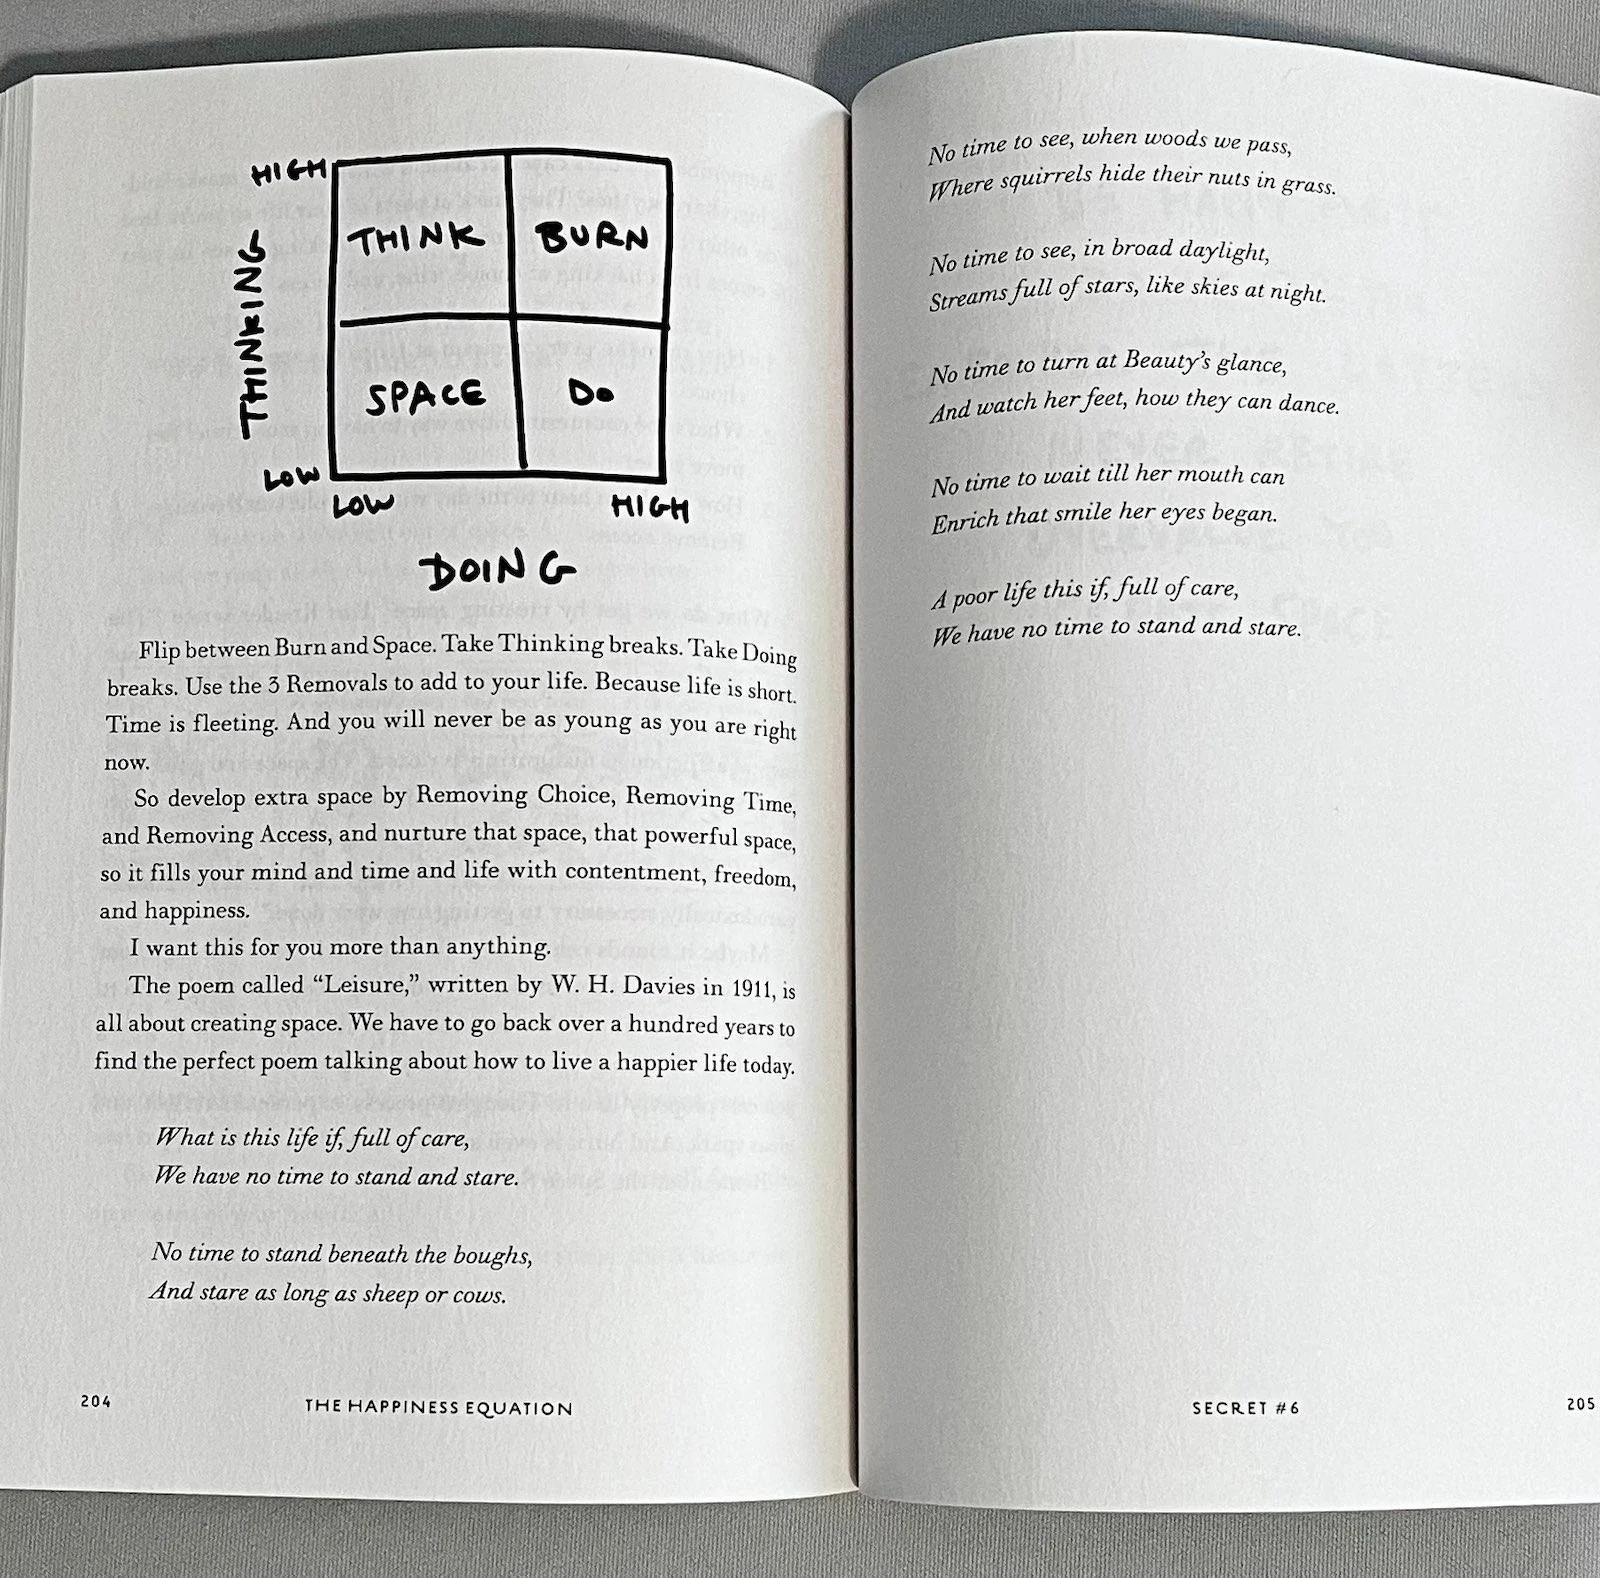 HIGH
THINK BURN
THINKING
SPACE DO
LOW
LOW HIGH
DOING
Flip between Burn and Space. Take Thinking breaks. Take Doing
breaks. Use the 3 Removals to add to your life. Because life is short.
Time is fleeting. And you will never be as young as you are right
now.
So develop extra space by Removing Choice, Removing Time,
and Removing Access, and nurture that space, that powerful space,
so it fills your mind and time and life with contentment, freedom,
and happiness.
I want this for you more than anything.
The poem called “Leisure,” written by W. H. Davies in 1911, is
all about creating space. We have to go back over a hundred years to
find the perfect poem talking about how to live a happier life today.
What is this life if, full of care,
We have no time to stand and stare.
No time to stand beneath the boughs,
And stare as long as sheep or cows.
204 THE HAPPINESS EQUATION
No time to see, when woods we pass,
Where squirrels hide their nuts in grass.
No time to see, in broad daylight,
Streams full of stars, like skies at night.
No time to turn at Beauty’s glance,
And watch her feet, how they can dance.
No time to wait till her mouth can
Enrich that smile her eyes began.
A poor life this if, full of care,
We have no time to stand and stare.
SECRET #6 205